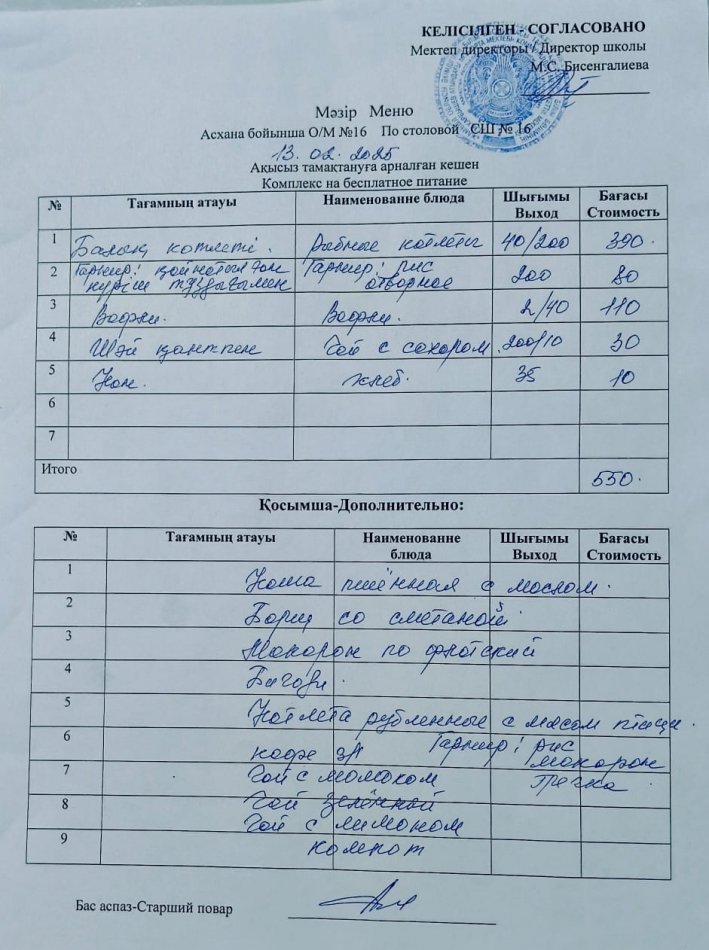 КЕЛІСІЛГЕН - СОГЛАСОВАНО
Мектеп директоры / Директор школы
М.С. Бисенгалиева
Мәзір Меню
Асхана бойынша О/М №16 По столовой СШ № 16
13. 02. 2025
Ақысыз тамақтануға арналған кешен
Комплекс на бесплатное питание
№ Тағамның атауы Наименованне блюда Шығымы Выход Бағасы Стоимость
1 Балық котлеті. Рыбные котлеты 40/200 390.
2 Гарнир: қайнатылған күріш тұздығымен Гарнир: рис отворное 200 80
3 Вафли. Вафли. 2/40 110
4 Шәй қантпен Чай с сахаром. 200/10 30
5 Нан. хлеб. 35 10
6
7
Итого 550.
Қосымша-Дополнительно:
№ Тағамның атауы Наименованне блюда Шығымы Выход Бағасы Стоимость
1 Каша пшённая с маслом.
2 Борщ со сметаной
3 Макарон по флотский
4 Бигози.
5 Котлета рубленные с мясом птицы.
6 кофе 3/1 Гарнир: рис макарон
7 Чай с молоком гречка
8 Чай зелённый
Чай с лимоном
9 компот
Бас аспаз-Старший повар